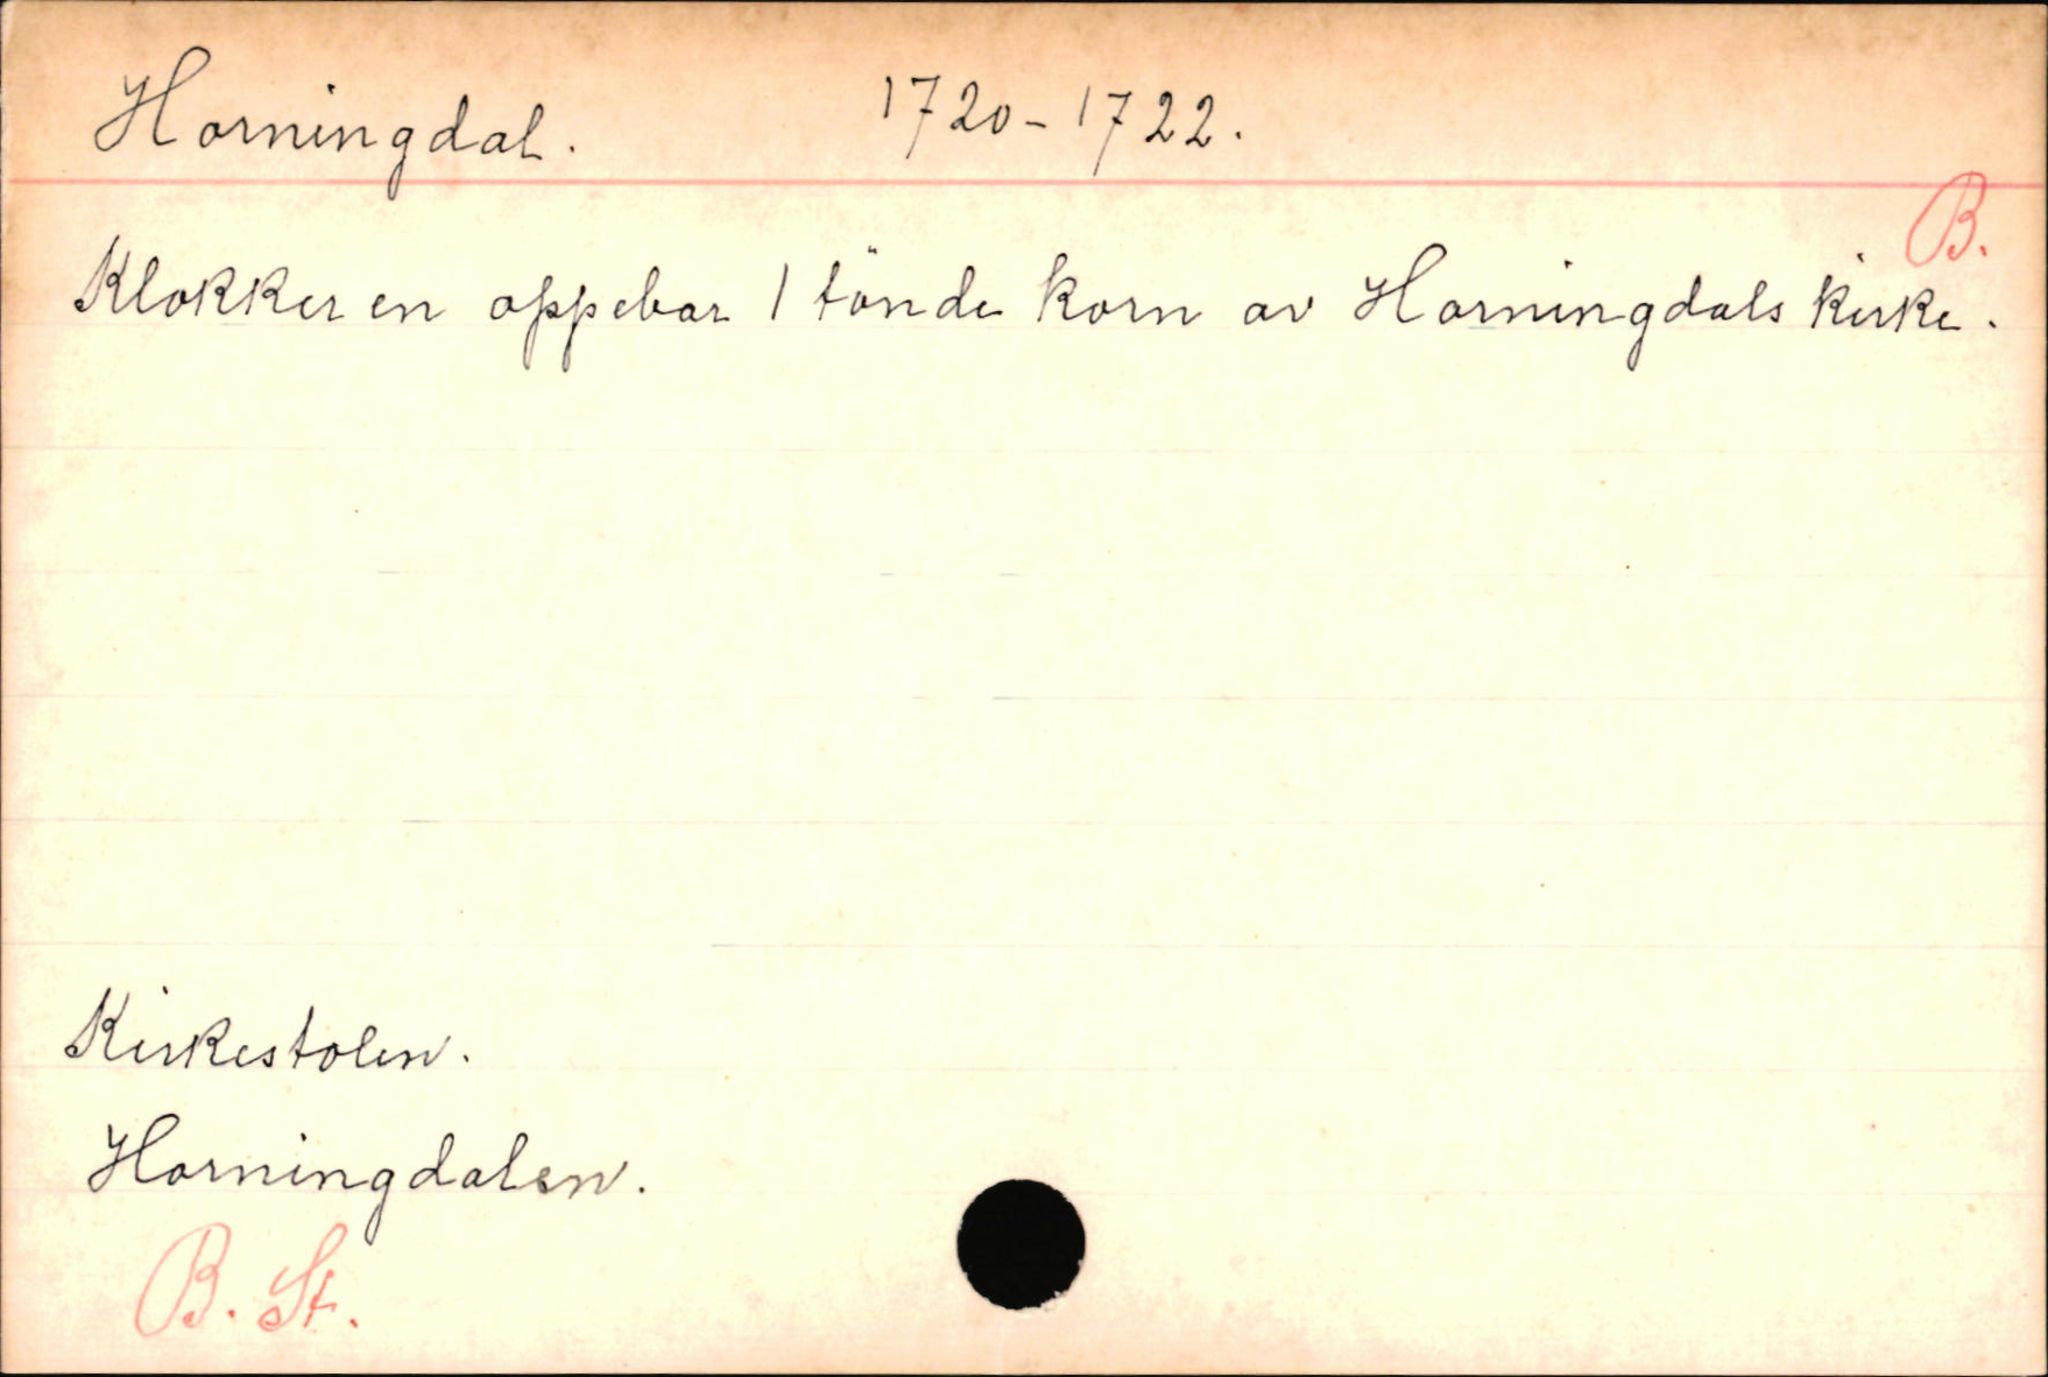 Horningdal. 1720-1722.
B.
Klokkeren oppebar 1 tönde korn av Horningdals kirke.
Kirkestolen.
Horningdalen.
B. St.